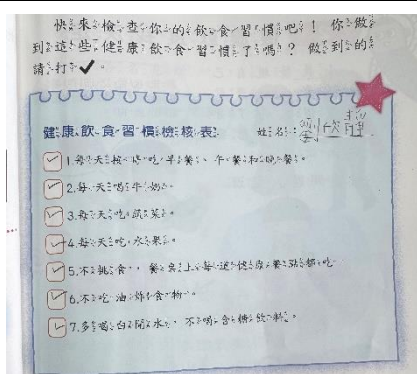 快來檢查你的飲食習慣吧！你做
到這些健康飲食習慣了嗎？做到的
請打✓。
健康飲食習慣檢核表
姓名：
1.每天按時吃早餐、午餐和晚餐。
2.每天喝牛奶。
3.每天吃蔬菜。
4.每天吃水果。
5.不挑食，餐桌上每道健康餐點都吃。
6.不吃油炸食物。
7.多喝白開水，不喝含糖飲料。